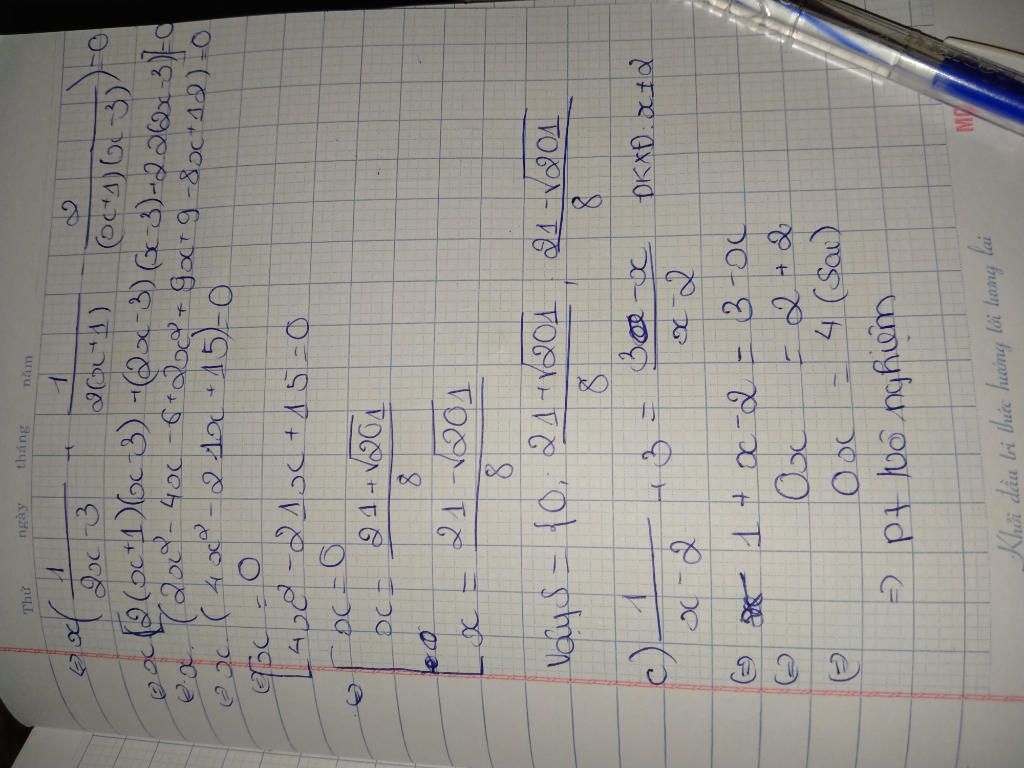 Thứ ngày tháng năm
⇔ x(1/(2x-3) + 1/(2(x+1)) - 2/((x+1)(x-3))) = 0
⇔ x[2(x+1)(x-3) + (2x-3)(x-3) + 2·2(2x-3)] = 0
⇔ x(2x² - 4x - 6 + 2x² + 9x + 9 - 8x + 12) = 0
⇔ x(4x² - 21x + 15) = 0
⇔ [x = 0
[4x² - 21x + 15 = 0
⇔ [x = 0
x = (21 + √201)/8
[x = (21 - √201)/8
Vậy S = {0; (21 + √201)/8; (21 - √201)/8
c) 1/(x-2) + 3 = (3-x)/(x-2) ĐKXĐ: x≠2
⇔ 1 + x - 2 = 3 - x
⇔ 0x = 2 + 2
⇔ 0x = 4 (sai)
⇒ pt vô nghiệm
Khởi đầu tri thức hướng tới tương lai